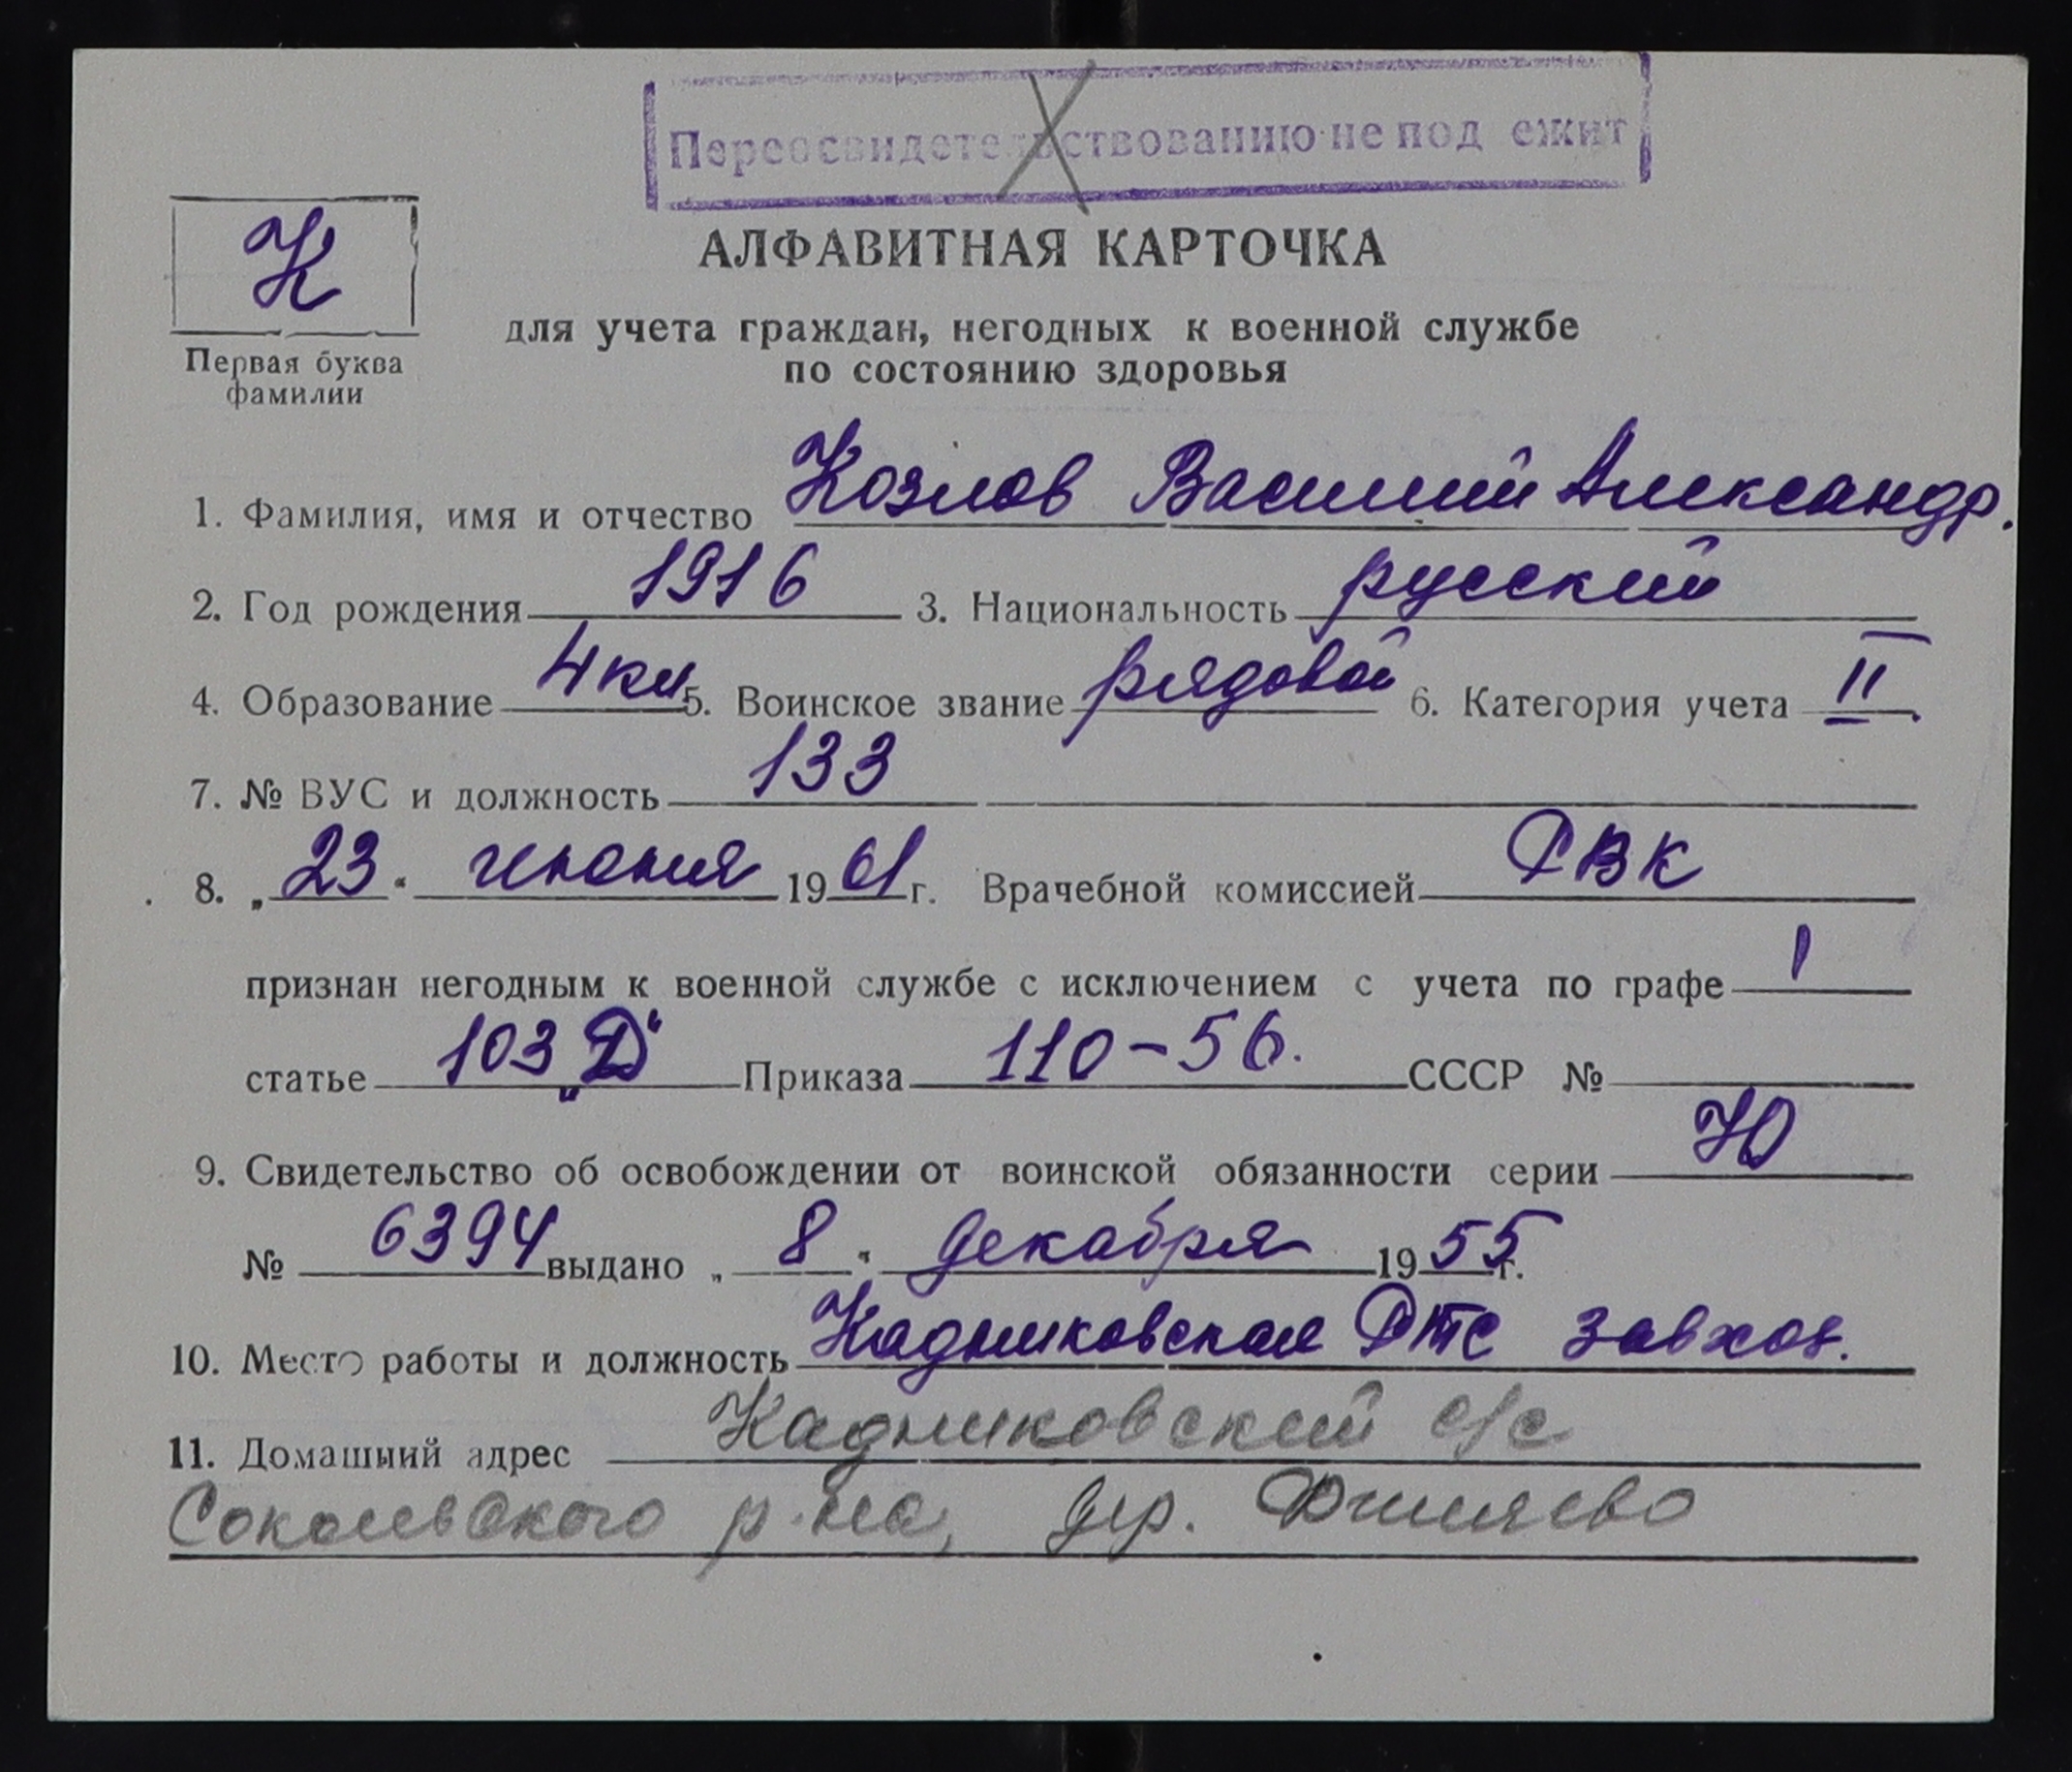 Переосвидетельствованию не под ежит
К
Первая буква
фамилии
АЛФАВИТНАЯ КАРТОЧКА
для учета граждан, негодных к военной службе
по состоянию здоровья
1. Фамилия, имя и отчество Козлов Василий Александр.
2. Год рождения 1916 3. Национальность русский
4. Образование 4 кл 5. Воинское звание рядовой 6. Категория учета II
7. № ВУС и должность 133
8. „23“ июня 1961 г. Врачебной комиссией РВК
признан негодным к военной службе с исключением с учета по графе 1
статье 103 „Д“ Приказа 110-56. СССР №
9. Свидетельство об освобождении от воинской обязанности серии Ю
№ 6394 выдано „8“ декабря 1955 г.
10. Место работы и должность Кадниковская РТС завхоз.
11. Домашний адрес Кадниковский с/с
Сокольского р-на, дер.